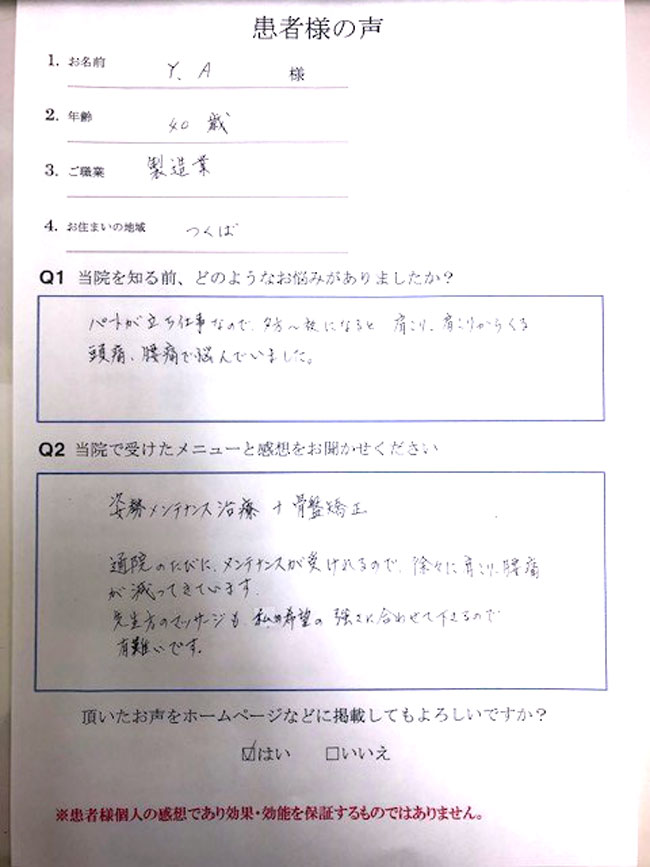 患者様の声
1. お名前 Y. A 様
2. 年齢 40 歳
3. ご職業 製造業
4. お住まいの地域 つくば
Q1 当院を知る前、どのようなお悩みがありましたか?
パートが立ち仕事なので、夕方〜夜になると 肩こり、肩こりからくる
頭痛、腰痛で悩んでいました。
Q2 当院で受けたメニューと感想をお聞かせください
姿勢メンテナンス治療 + 骨盤矯正
通院のたびに、メンテナンスが受けれるので、徐々に肩こり、腰痛
が減ってきています。
先生方のマッサージも、私の希望の強さに合わせて下さるので
有難いです。
頂いたお声をホームページなどに掲載してもよろしいですか?
☑はい □いいえ
※患者様個人の感想であり効果・効能を保証するものではありません。